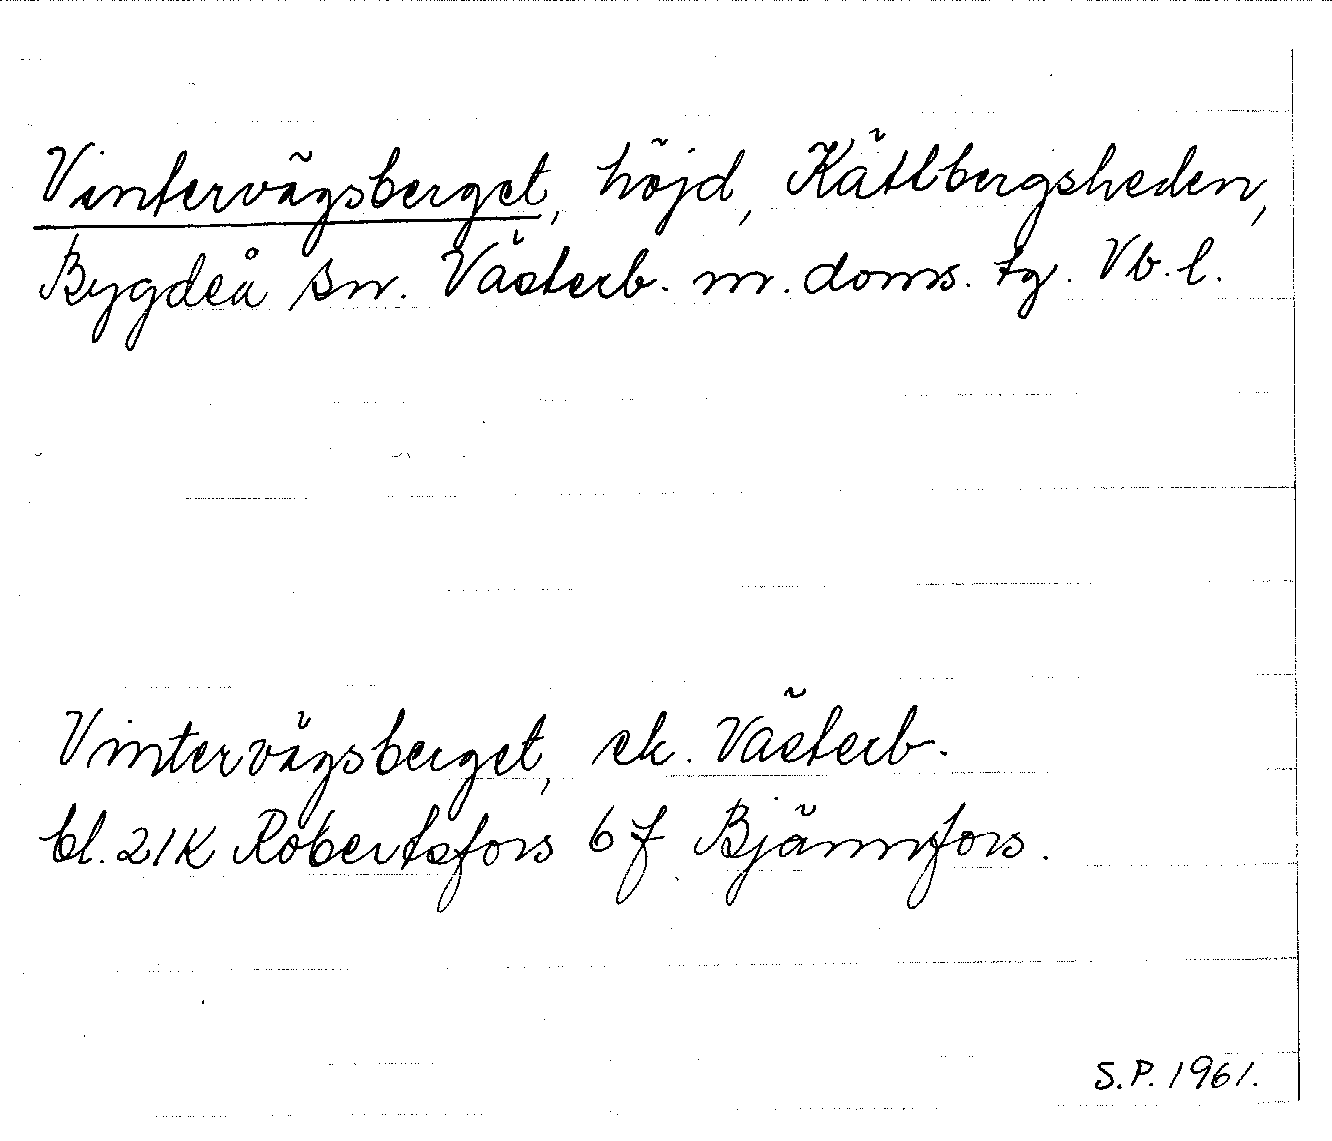 Vintervägsberget, höjd, Kätlbergsheden,
Bygdeå sn. Västerb. m. doms. tg. Vb. l.
Vintervägsberget, ek. Västerb.
bl. 21K Robertsfors 6 f Bjännfors.
S.P. 1961.